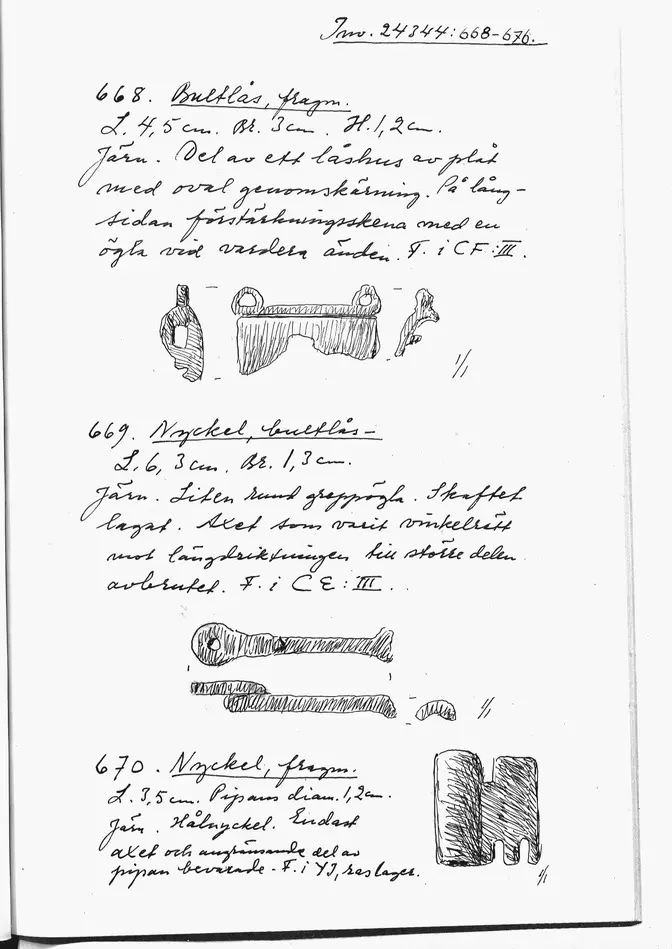 Inv. 24344:668-676.
668. Bultlås, fragm.
L. 4,5 cm. Br. 3 cm. H. 1,2 cm.
Järn. Del av ett låshus av plåt
med oval genomskärning. På lång-
sidan förstärkningsskena med en
ögla vid vardera änden. F. i CF:III.
1/1
669. Nyckel, bultlås-
L. 6,3 cm. Br. 1,3 cm.
Järn. Liten rund greppögla. Skaftet
lagat. Axet som varit vinkelrätt
mot längdriktningen till större delen
avbrutet. F. i CE:III.
1/1
670. Nyckel, fragm.
L. 3,5 cm. Pipans diam. 1,2 cm.
Järn. Hålnyckel. Endast
axet och angränsande del av
pipan bevarade - F. i YJ, raslager.
1/1